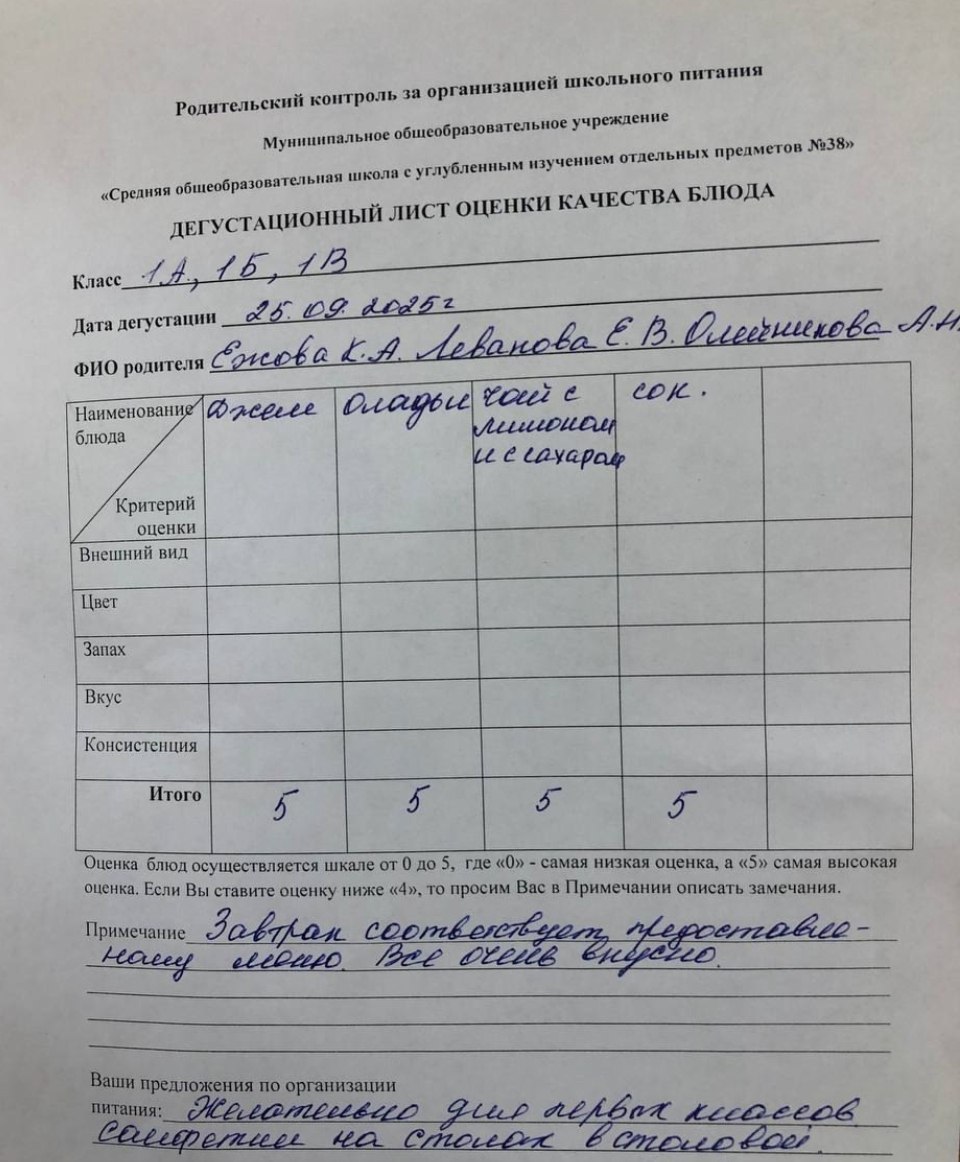 Родительский контроль за организацией школьного питания
Муниципальное общеобразовательное учреждение
«Средняя общеобразовательная школа с углубленным изучением отдельных предметов №38»
ДЕГУСТАЦИОННЫЙ ЛИСТ ОЦЕНКИ КАЧЕСТВА БЛЮДА
Класс 1А, 1Б, 1В
Дата дегустации 25.09.2025г
ФИО родителя Ежова К.А. Леванова Е.В. Олейникова А.Н.
Наименование блюда Критерий оценки Джем Оладьи чай с лимоном и с сахаром сок.
Внешний вид
Цвет
Запах
Вкус
Консистенция
Итого 5 5 5 5
Оценка блюд осуществляется шкале от 0 до 5, где «0» - самая низкая оценка, а «5» самая высокая
оценка. Если Вы ставите оценку ниже «4», то просим Вас в Примечании описать замечания.
Примечание Завтрак соответствует предоставле-
нному меню. Все очень вкусно.
Ваши предложения по организации
питания: Желательно для первых классов
салфетки на столах в столовой.